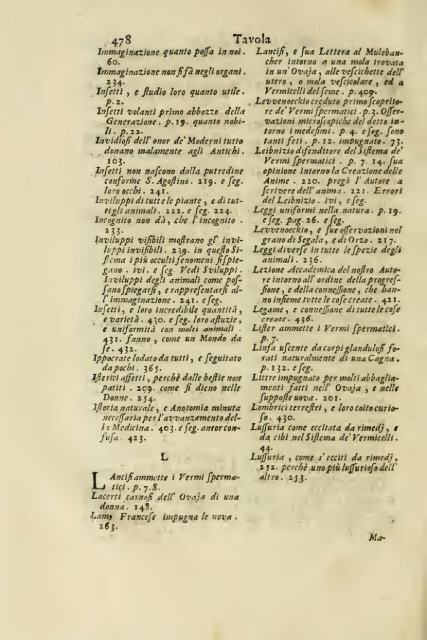 478 Tavola
Immaginazione quanto possa in noi.
60.
Immaginazione non si fà negli organi.
234.
Insetti, e studio loro quanto utile.
p. 2.
Insetti volanti primo abbozzo della
Generazione. p. 19. quanto nobi-
li. p. 22.
Invidiosi dell' onor de' Moderni tutto
donano malamente agli Antichi.
103.
Insetti non nascon dalla putredine
conforme S. Agostino. 219. e seg.
loro occhi. 241.
Inviluppi di tutte le piante, e di tut-
ti gli animali. 222. e seg. 224.
Incognito non dà, che l' incognito.
233.
Inviluppi visibili mostrano gl' invi-
luppi invisibili. 239. in questo Si-
stema i più occulti fenomeni si spie-
gano. ivi. e seg. Vedi Sviluppi.
Inviluppi degli animali come pos-
sano spiegarsi, e rappresentarsi al-
l' immaginazione. 241. e seg.
Insetti, e loro incredibile quantità,
e varietà. 430. e seg. loro astuzie,
e uniformità con molti animali.
431. fanno, come un Mondo da
se. 432.
Ippocrate lodato da tutti, e seguitato
da pochi. 365.
Isterici affetti, perchè dalle bestie non
patiti. 209. come si dieno nelle
Donne. 254.
Istoria naturale, e Anotomia minuta
necessaria per l' avvanzamento del-
la Medicina. 403. e seg. ancor con-
fusa. 423.
L
LAncisi ammette i Vermi sperma-
tici. p. 7. 8.
Lacerti carnosi dell' Ovaja di una
donna. 148.
Lamy Francese impugna le uova.
263.
Lantisi, e sua Lettera al Muleban-
cher intorno a una mola trovata
in un' Ovaja, alle vescichette dell'
utero, o mola vescicolare, ed a
Vermicelli del seme. p. 409.
Levvenoeckio creduto primo scoprito-
re de' Vermi spermatici. p. 3. Osser-
vazioni microscopiche del detto in-
torno i medesimi. p. 4. e seg. sono
tanti feti. p. 12. impugnato. 73.
Leibnizio difenditore del Sistema de'
Vermi spermatici. p. 7. 14. sua
opinione intorno la Creazione delle
Anime. 220. pregò l' Autore a
scrivere dell' anima. 221. Errori
del Leibnizio. ivi, e seg.
Leggi uniformi nella natura. p. 19.
e seg. pag. 26. e seg.
Levvenoeckio, e sue osservazioni nel
grano di Segala, e di Orzo. 217.
Leggi diverse in tutte le spezie degli
animali. 236.
Lezione Accademica del nostro Auto-
re intorno all' ordine della progres-
sione, e della connessione, che han-
no insieme tutte le cose create. 421.
Legame, e connessione di tutte le cose
create. 436.
Lister ammette i Vermi spermatici.
p. 7.
Linfa uscente da corpi glandulosi fo-
rati naturalmente di una Cagna.
p. 132. e seg.
Littre impugnato per molti abbaglia-
menti fatti nell' Ovaja, e nelle
supposte uova. 201.
Lombrici terrestri, e loro coito curio-
so. 430.
Lussuria come eccitata da rimedj, e
da cibi nel Sistema de' Vermicelli.
44.
Lussuria, come s' ecciti da rimedj,
252. perchè uno più lussurioso dell'
altro. 253.
Ma-